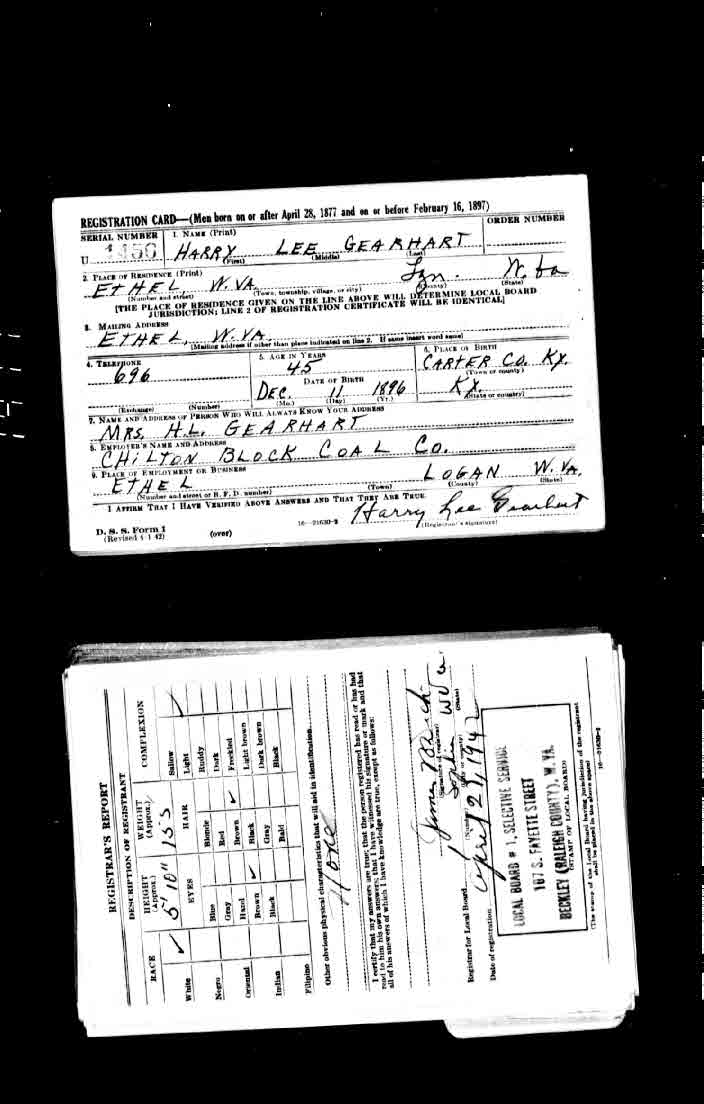 REGISTRATION CARD—(Men born on or after April 28, 1877 and on or before February 16, 1897)
SERIAL NUMBER 1. NAME (Print) ORDER NUMBER
U 1456 HARRY LEE GEARHART
(First) (Middle) (Last)
2. PLACE OF RESIDENCE (Print)
ETHEL W.VA. W. Va
(Number and street) (Town, township, village, or city) (County) (State)
[THE PLACE OF RESIDENCE GIVEN ON THE LINE ABOVE WILL DETERMINE LOCAL BOARD
JURISDICTION; LINE 2 OF REGISTRATION CERTIFICATE WILL BE IDENTICAL]
3. MAILING ADDRESS
ETHEL, W.VA.
[Mailing address if other than place indicated on line 2. If same insert word same]
4. TELEPHONE 5. AGE IN YEARS 6. PLACE OF BIRTH
696 45 CARTER CO. KY.
DATE OF BIRTH (Town or county)
DEC. 11 1896 KY.
(Exchange) (Number) (Mo.) (Day) (Yr.) (State or country)
7. NAME AND ADDRESS OF PERSON WHO WILL ALWAYS KNOW YOUR ADDRESS
MRS. H.L. GEARHART
8. EMPLOYER'S NAME AND ADDRESS
CHILTON BLOCK COAL CO.
9. PLACE OF EMPLOYMENT OR BUSINESS
ETHEL LOGAN W.VA.
(Number and street or R. F. D. number) (Town) (County) (State)
I AFFIRM THAT I HAVE VERIFIED ABOVE ANSWERS AND THAT THEY ARE TRUE.
Harry Lee Gearhart
D. S. S. Form 1 16—21630-2 (Registrant's signature)
(Revised 4-1-42) (over)
REGISTRAR'S REPORT
DESCRIPTION OF REGISTRANT
RACE HEIGHT (Approx.) WEIGHT (Approx.) COMPLEXION
5' 10" 155
White ✓ EYES HAIR Sallow
Light ✓
Negro Blue Blonde Ruddy
Gray Red Dark
Oriental Hazel Brown ✓ Freckled
Brown ✓ Black Light brown
Indian Black Gray Dark brown
Filipino Bald Black
Other obvious physical characteristics that will aid in identification
None
I certify that my answers are true; that the person registered has read or has had
read to him his own answers; that I have witnessed his signature or mark and that
all of his answers of which I have knowledge are true, except as follows:
James
(Signature of registrar)
Registrar for Local Board 1 W Va
(Number) (City or county) (State)
Date of registration April 27, 1942
LOCAL BOARD # 1, SELECTIVE SERVICE
107 S. FAYETTE STREET
BECKLEY (RALEIGH COUNTY), W. VA.
(STAMP OF LOCAL BOARD)
(The stamp of the Local Board having jurisdiction of the registrant
shall be placed in the above space)
16—21630-2